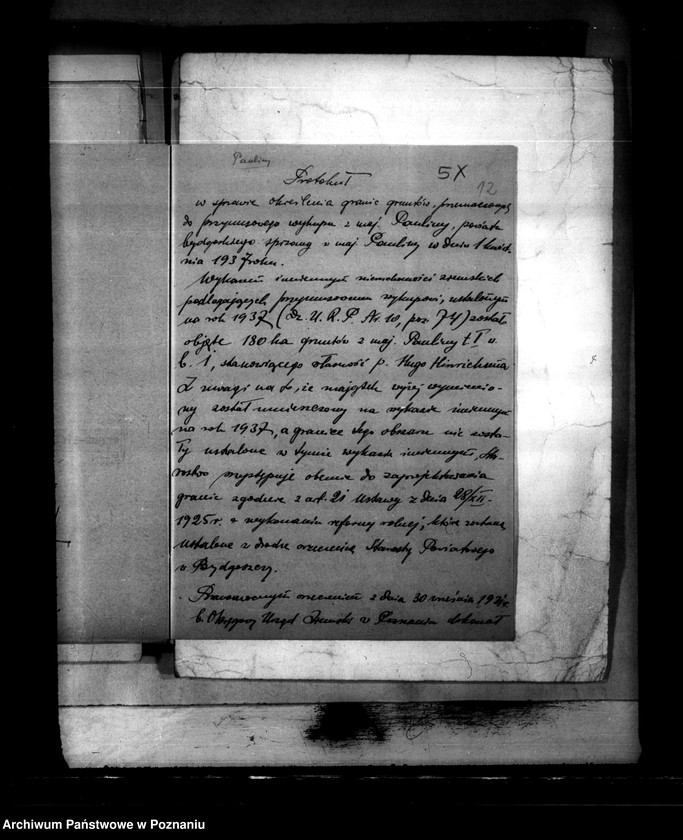 Pauliny
5X
12
Protokuł
w sprawie określenia granic gruntów, przeznaczonych
do przymusowego wykupu z maj. Pauliny, powiatu
bydgoskiego spisany w maj. Pauliny w dniu 1 kwiet-
nia 1937 roku.
Wykazem imiennym nieruchomości ziemskich
podlegających przymusowemu wykupowi, ustalonym
na rok 1937 (Dz. U. R. P. Nr. 10, poz. 74) zostało
objęte 180 ha gruntów z maj. Pauliny t. I w.
l. 1, stanowiącego własność p. Hugo Hinrichsena
Z uwagi na to, iż majątek wyżej wymienio-
ny został umieszczony na wykazie imiennym
na rok 1937, a granice tego obszaru nie zosta-
ły ustalone w tymże wykazie imiennym, Sta-
rostwo przystępuje obecnie do zaprojektowania
granic zgodnie z art. 21 ustawy z dnia 28/XII.
1925 r. o wykonaniu reformy rolnej, które zostaną
ustalone w drodze orzeczenia Starosty Powiatowego
w Bydgoszczy.
Prawomocnym orzeczeniem z dnia 30 września
b. Okręgowy Urząd Ziemski w Poznaniu dokonał
Archiwum Państwowe w Poznaniu